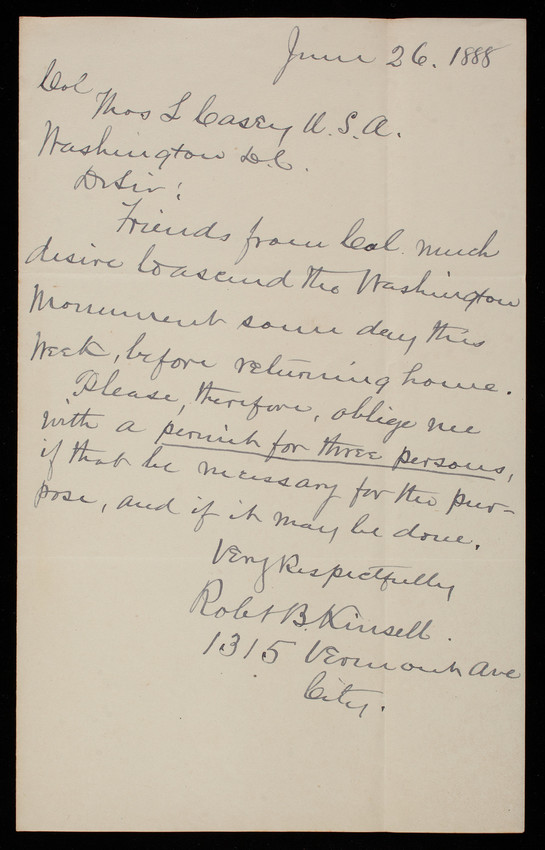 June 26. 1888
Col
Thos L Casey U.S.A.
Washington D.C.
Dr Sir:
Friends from Col. much
desire to ascend the Washington
Monument some day this
week, before returning home.
Please, therefore, oblige me
with a permit for three persons,
if that be necessary for the pur-
pose, and if it may be done.
Very Respectfully
Robt B. Kinsell.
1315 Vermont Ave
City.